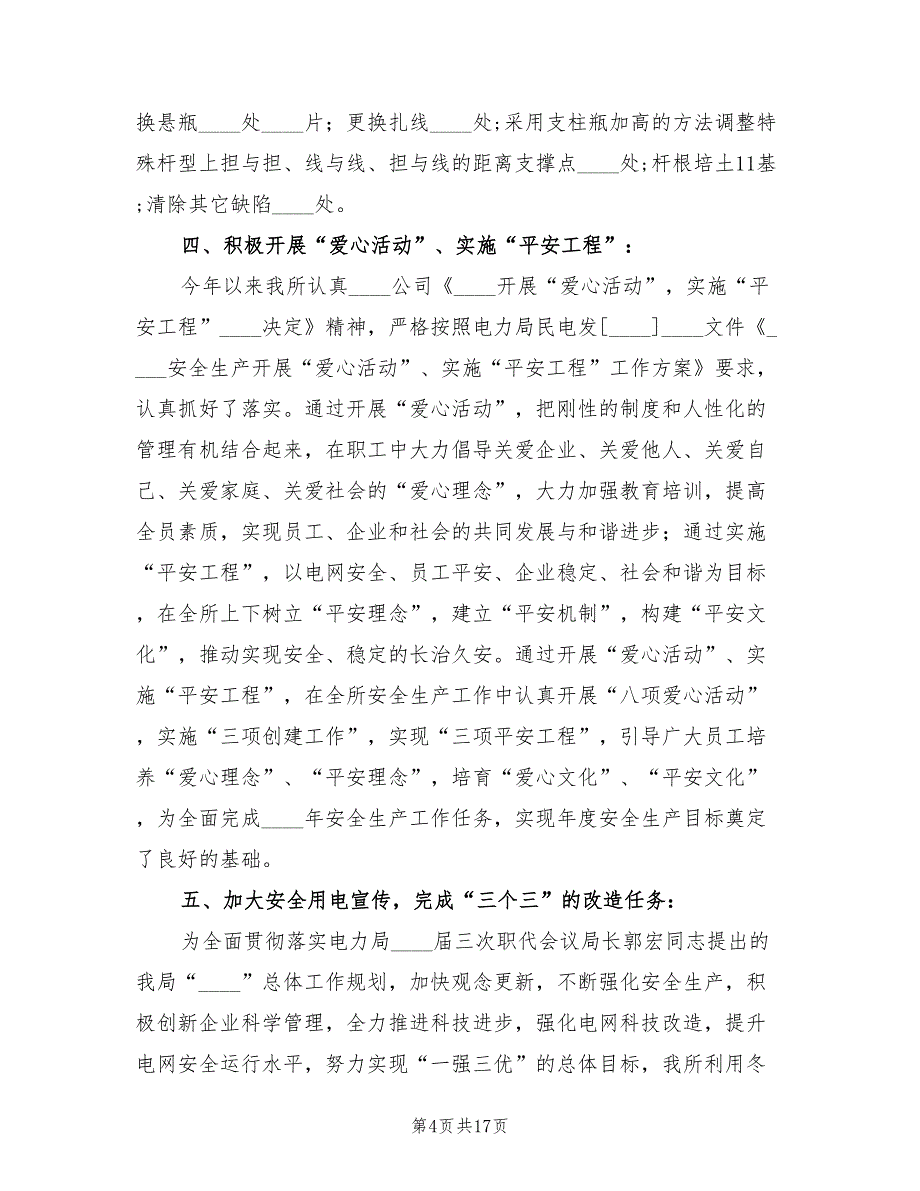 换悬瓶____处____片；更换扎线____处;采用支柱瓶加高的方法调整特
殊杆型上担与担、线与线、担与线的距离支撑点____处;杆根培土11基
;清除其它缺陷____处。
四、积极开展“爱心活动”、实施“平安工程”：
今年以来我所认真____公司《____开展“爱心活动”，实施“平
安工程”____决定》精神，严格按照电力局民电发[____]____文件《_
___安全生产开展“爱心活动”、实施“平安工程”工作方案》要求，
认真抓好了落实。通过开展“爱心活动”，把刚性的制度和人性化的
管理有机结合起来，在职工中大力倡导关爱企业、关爱他人、关爱自
己、关爱家庭、关爱社会的“爱心理念”，大力加强教育培训，提高
全员素质，实现员工、企业和社会的共同发展与和谐进步；通过实施
“平安工程”，以电网安全、员工平安、企业稳定、社会和谐为目标
，在全所上下树立“平安理念”，建立“平安机制”，构建“平安文
化”，推动实现安全、稳定的长治久安。通过开展“爱心活动”、实
施“平安工程”，在全所安全生产工作中认真开展“八项爱心活动”
，实施“三项创建工作”，实现“三项平安工程”，引导广大员工培
养“爱心理念”、“平安理念”，培育“爱心文化”、“平安文化”
，为全面完成____年安全生产工作任务，实现年度安全生产目标奠定
了良好的基础。
五、加大安全用电宣传，完成“三个三”的改造任务：
为全面贯彻落实电力局____届三次职代会议局长郭宏同志提出的
我局“____”总体工作规划，加快观念更新，不断强化安全生产，积
极创新企业科学管理，全力推进科技进步，强化电网科技改造，提升
电网安全运行水平，努力实现“一强三优”的总体目标，我所利用冬
第4页共17页